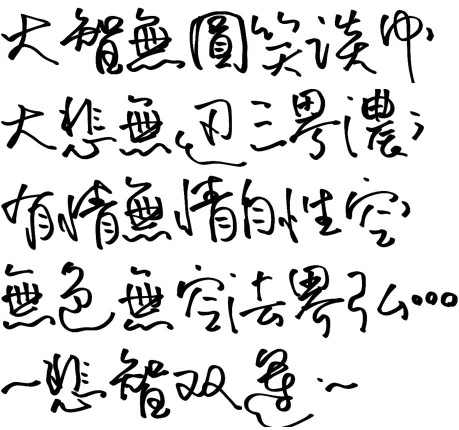 大智無圓笑談中
大悲無迅三界濃
有情無情自性空
無色無空法界弘...
~悲智双運~